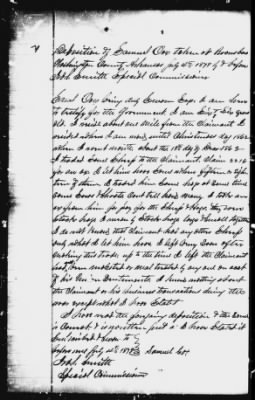 Deposition of Samuel Cox taken at Boonsboro
Washington County, Arkansas July 15th 1878 by & before
John Smith Special Commissioner
Samuel Cox being duly Sworn Says I am here
to testify for the Government. I am Sixty Six years
old. I reside about one mile from the Claimant. I
resided where I am now, until Christmas day 1862
when I went north about the 1st day of 1862
I traded Some Sheep to the Claimant Claim 2216
for an ox. I let him have Some where fifteen or fif-
teen of them. I traded him Some hogs at Same time
Some Sows & Shoats Cant tell how many. I take
ox from him to pay for the Sheep & Hogs they were
Stock hogs I mean by Stock hogs large & small together
I do not know that Claimant had any other Sheep
only what I let him have I left very soon after
making this trade up to the time I left the Claimant
had, from
his I know nothing about
the Claimant or his business transactions during the
war except what I have Stated
I have read the foregoing deposition & the Same
is Correct & is written just as I have Stated it
Subscribed & Sworn to
before me July 15th 1878 Samuel Cox
John Smith
Special Commissioner